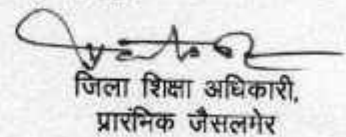 जिला शिक्षा अधिकारी,
प्रारंनिक जैसलगेर